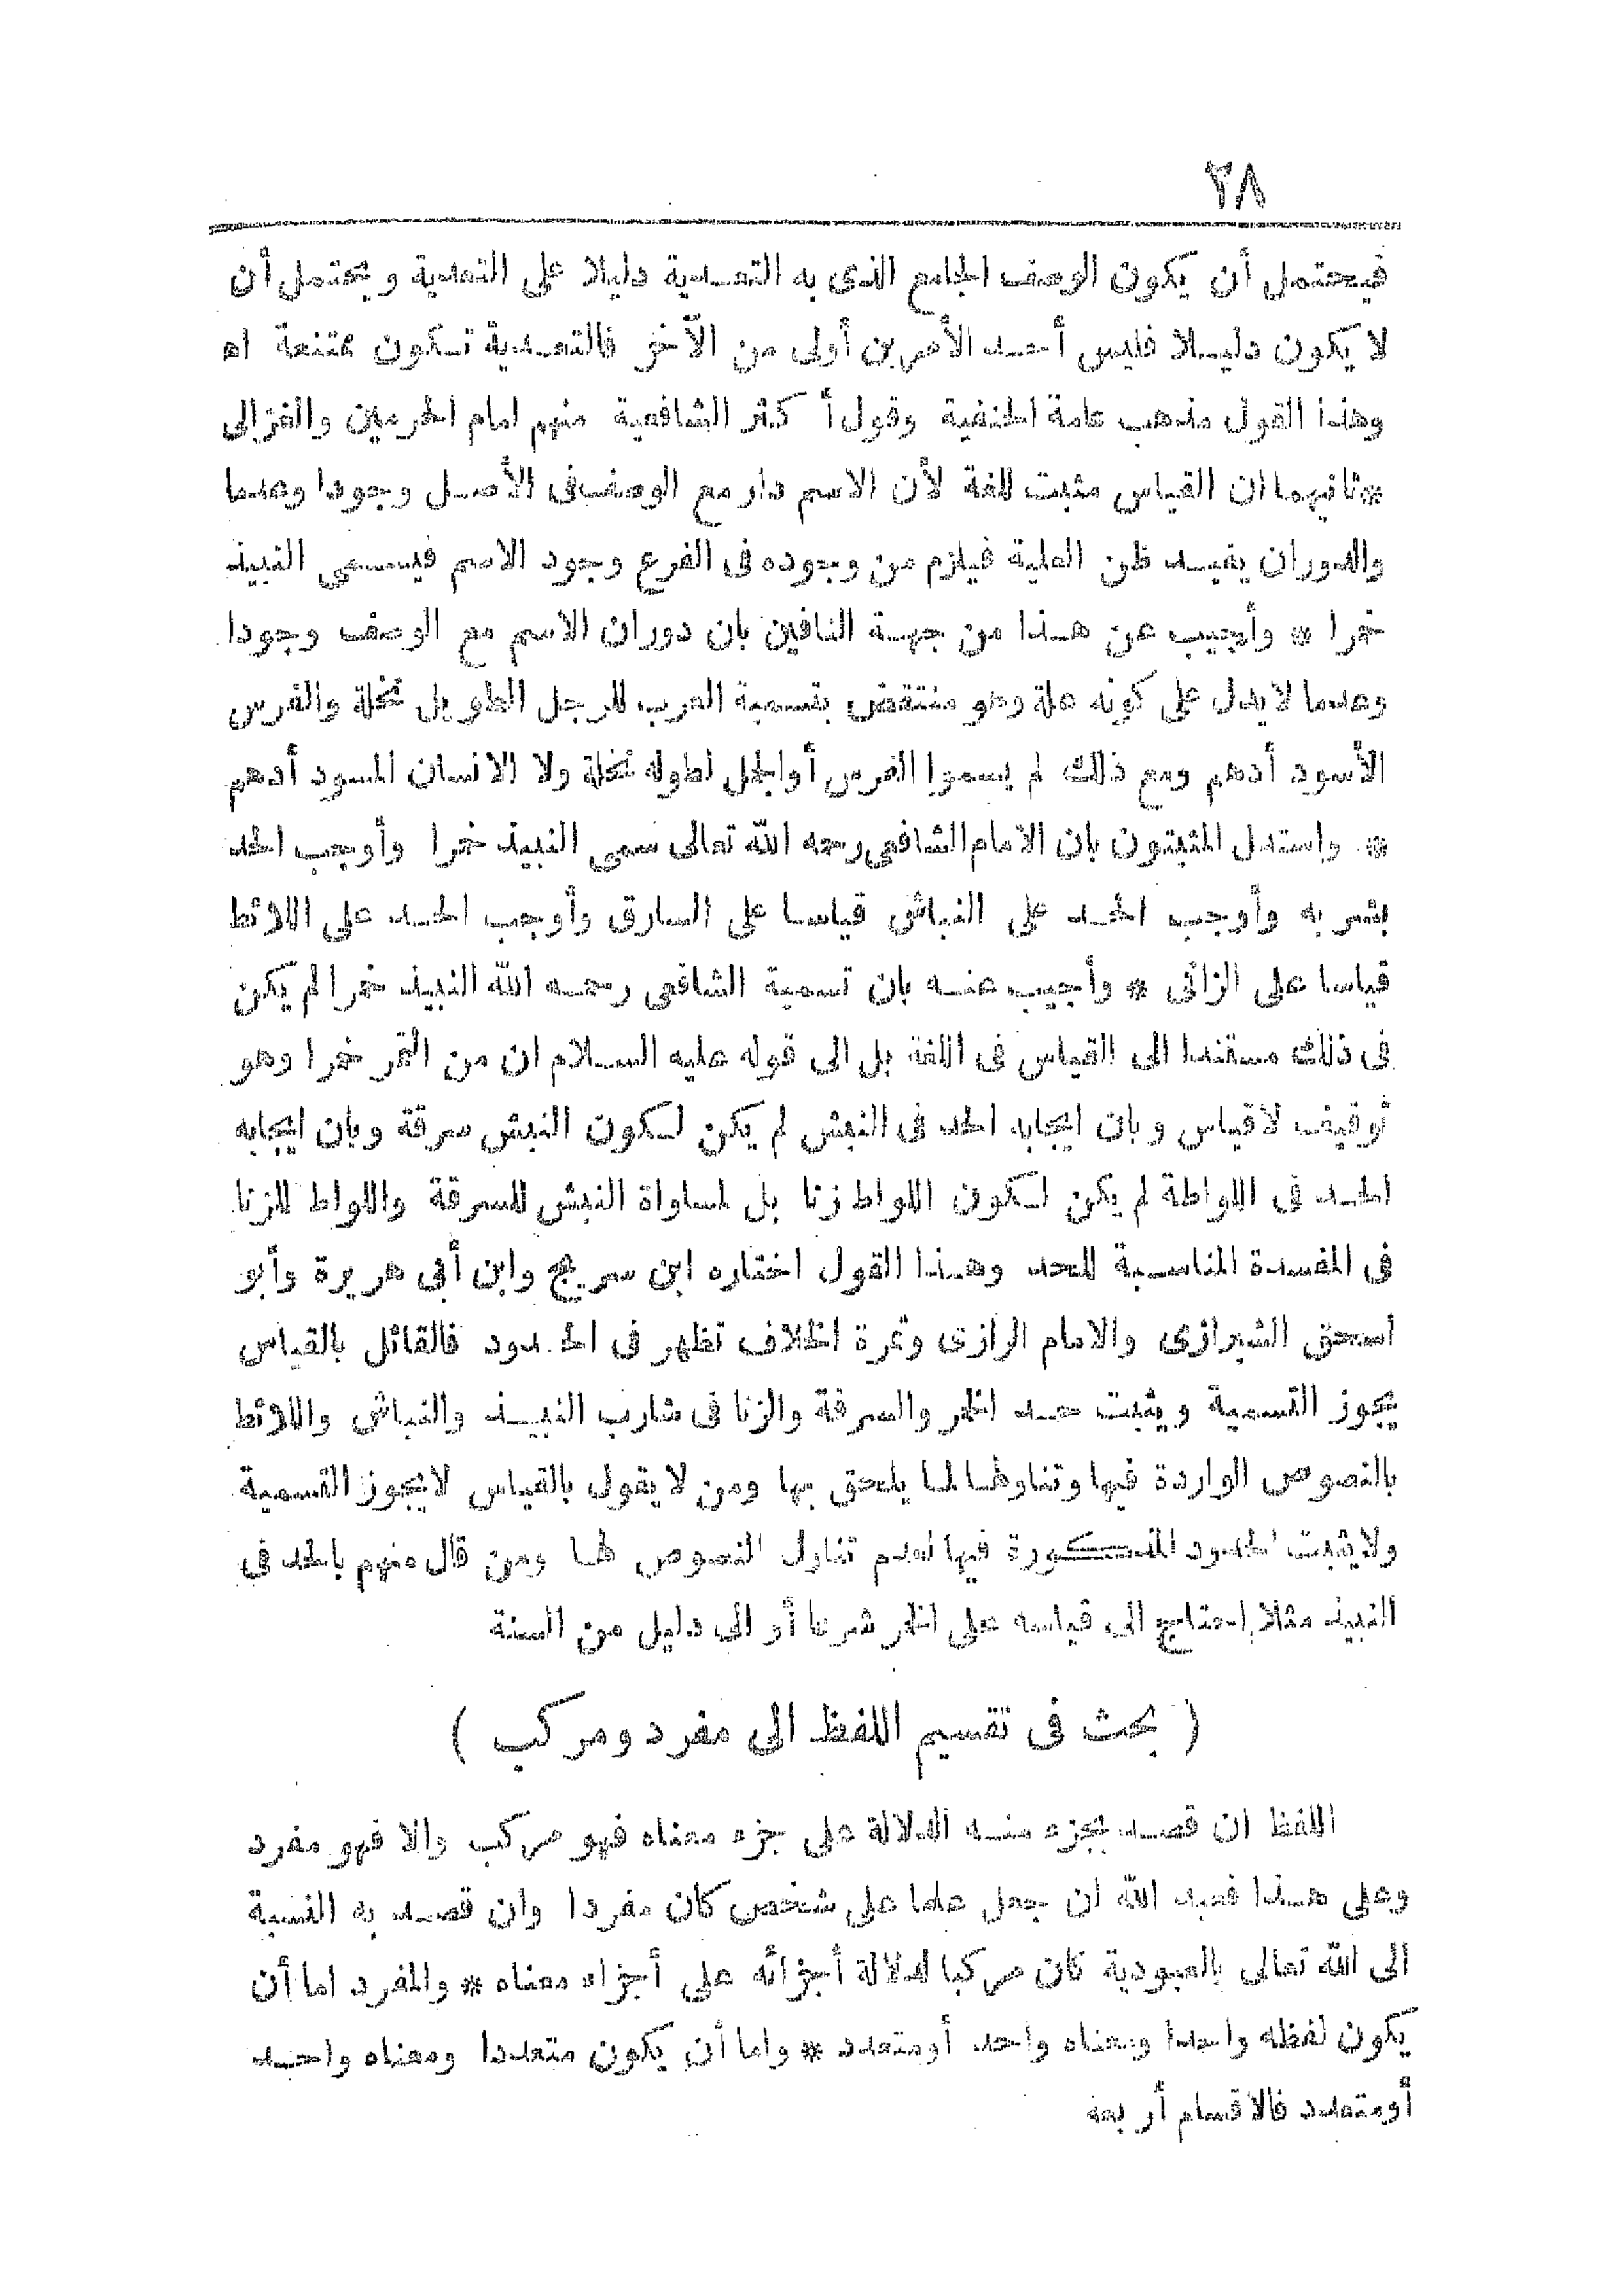 ٢٨
فيحتمل أن يكون الوصف الجامع الذى به التعدية دليلا على التعدية ويحتمل أن
لا يكون دليلا فليس أحد الأمرين أولى من الآخر فالتعدية تكون ممتنعة اه
وهذا القول مذهب عامة الحنفية وقول أكثر الشافعية منهم امام الحرمين والغزالى
* ثانيهما ان القياس مثبت للغة لأن الاسم دار مع الوصف فى الأصل وجودا وعدما
والدوران يفيد ظن العلية فيلزم من وجوده فى الفرع وجود الاسم فيسمى النبيذ
خمرا * وأجيب عن هذا من جهة النافين بان دوران الاسم مع الوصف وجودا
وعدما لا يدل على كونه علة وهو منتقض بتسمية العرب للرجل الطويل نخلة والفرس
الأسود أدهم ومع ذلك لم يسموا الفرس أو الجمل لطوله نخلة ولا الانسان المسود أدهم
* واستدل المثبتون بان الامام الشافعى رحمه الله تعالى سمى النبيذ خمرا وأوجب الحد
بشربه وأوجب الحد على النباش قياسا على السارق وأوجب الحد على اللائط
قياسا على الزانى * وأجيب عنه بان تسمية الشافعى رحمه الله النبيذ خمرا لم يكن
فى ذلك مستندا الى القياس فى اللغة بل الى قوله عليه السلام ان من التمر خمرا وهو
توقيف لا قياس وبان ايجابه الحد فى النبش لم يكن لكون النبش سرقة وبان ايجابه
الحد فى اللواطة لم يكن لكون اللواط زنا بل لمساواة النبش للسرقة واللواط للزنا
فى المفسدة المناسبة للحد وهذا القول اختاره ابن سريج وابن أبى هريرة وأبو
اسحق الشيرازى والامام الرازى وثمرة الخلاف تظهر فى الحدود فالقائل بالقياس
يجوز التسمية ويثبت حد الخمر والسرقة والزنا فى شارب النبيذ والنباش واللائط
بالنصوص الواردة فيها وتناولها لما يلحق بها ومن لا يقول بالقياس لا يجوز التسمية
ولا يثبت الحدود المذكورة فيها لعدم تناول النصوص لها ومن قال منهم بالحد فى
النبيذ مثلا إحتاج الى قياسه على الخمر شرعا أو الى دليل من السنة
( بحث فى تقسيم اللفظ الى مفرد ومركب )
اللفظ ان قصد بجزء منه الدلالة على جزء معناه فهو مركب والا فهو مفرد
وعلى هذا فعبد الله ان جعل علما على شخص كان مفردا وان قصد به النسبة
الى الله تعالى بالعبودية كان مركبا لدلالة أجزائه على أجزاء معناه * والمفرد اما أن
يكون لفظه واحدا ومعناه واحد أو متعدد * واما أن يكون متعددا ومعناه واحد
أو متعدد فالاقسام أربعة